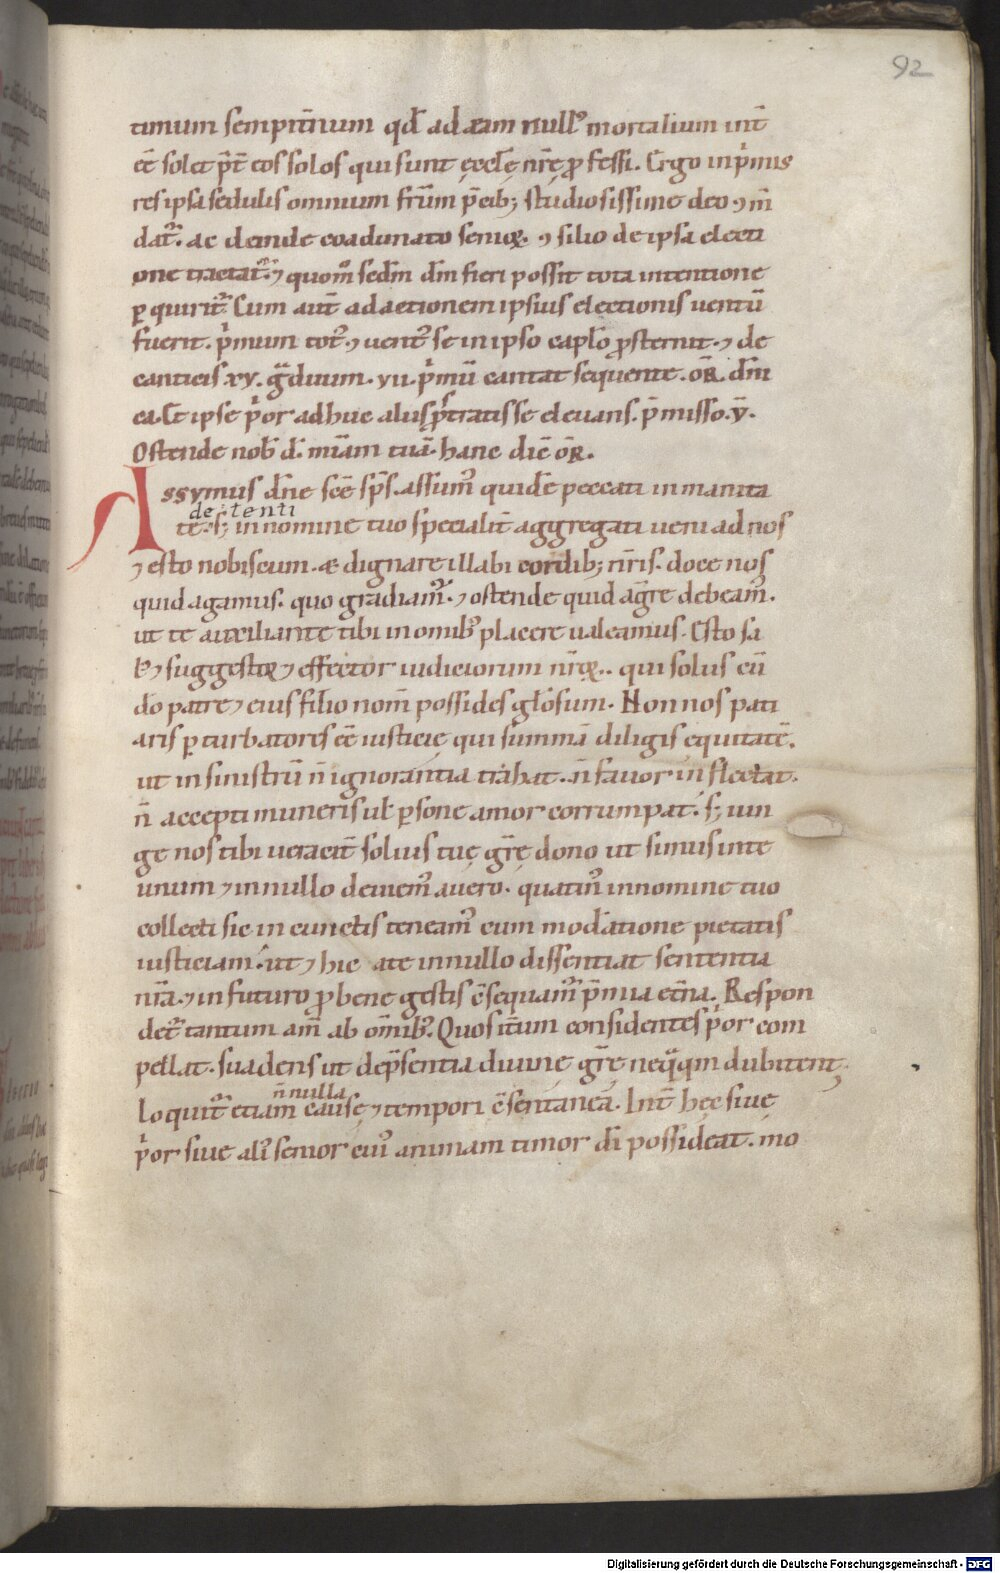 92
timum sempit̄num qd̄ ad eam null᷒ mortalium int̄
eē solet p̄t̄ eos solos qui sunt ęccl̄ę nr̄ę ꝓfessi. Ergo inpͥmis
res ipsa sedulis omnium fr̄um p̄cib; studiosissime deo ⁊ m̄
dat᷑. ac deinde coadunato senioꝝ ⁊silio de ipsa electi
one tractat᷑ ⁊ quom̊ sed̄m dm̄ fieri possit tota intentione
ꝑquirit᷑. Cum aut̄ adactionem ipsius electionis uentū
fuerit. pͥmum tot᷒ ⁊uent᷒ se in ipso capl̄o ꝓsternit. ⁊ de
canticis xv. gͣduum. vii. pͥmū cantat sequente. oR̄. dn̄i
ca. Et ipse pͥor adhuc aliis ꝓstratis se eleuans. p̄misso. v̄.
Ostende nob̄ d̄. mīam tuā. hanc dic̄ oR̄.
Assvmus dn̄e sc̄e sp̄s. assum᷒ quidē peccati inmanita
de tenti
te. s; in nomine tuo specialit̄ aggregati. ueni ad nos
⁊ esto nobiscum. & dignare illabi cordib; nr̄is. doce nos
quid agamus. quo gradiam᷒. ⁊ ostende quid agere debeam᷒.
ut te auxiliante tibi in omib᷒ placere ualeamus. Esto sa
l᷒ ⁊ suggestor ⁊ effector iudiciorum nr̄oꝝ. qui solus cū
do patre ⁊ eius filio nom̄ possides gl̄osum. Non nos pati
aris ꝑturbatores eē iusticię qui summā diligis equitatē.
ut in sinistrū n̄ ignorantia trahat. n̄ fauor inflectat.
n̄ acceptio muneris ul̄ ꝑsone amor corrumpat. s; iun
ge nos tibi ueracit̄ solius tuę gr̄ę dono ut simus in te
unum ⁊ in nullo deuiem᷒ a uero. quatin᷒ in nomine tuo
collecti sic in cunctis teneam᷒ cum mod̄atione pietatis
iusticiam. ut ⁊ hic a te in nullo dissentiat sententia
nr̄a. ⁊ in futuro ꝓ bene gestis c̄sequam᷒ p̄mia et̄na. Respon
det᷑ tantum am̄ ab om̄ib᷒. Quos it̄um considentes pͥor com
pellat. suadens ut de p̄sentia diuinę gr̄ę neqͣqͣm dubitent,
n̄ nulla
Loquit᷑ etiam causę ⁊ tempori c̄sentanea. Int̄ hęc siue
pͥor siue ali᷒ senior cui᷒ animam timor dī possideat. mo
Digitalisierung gefördert durch die Deutsche Forschungsgemeinschaft - DFG